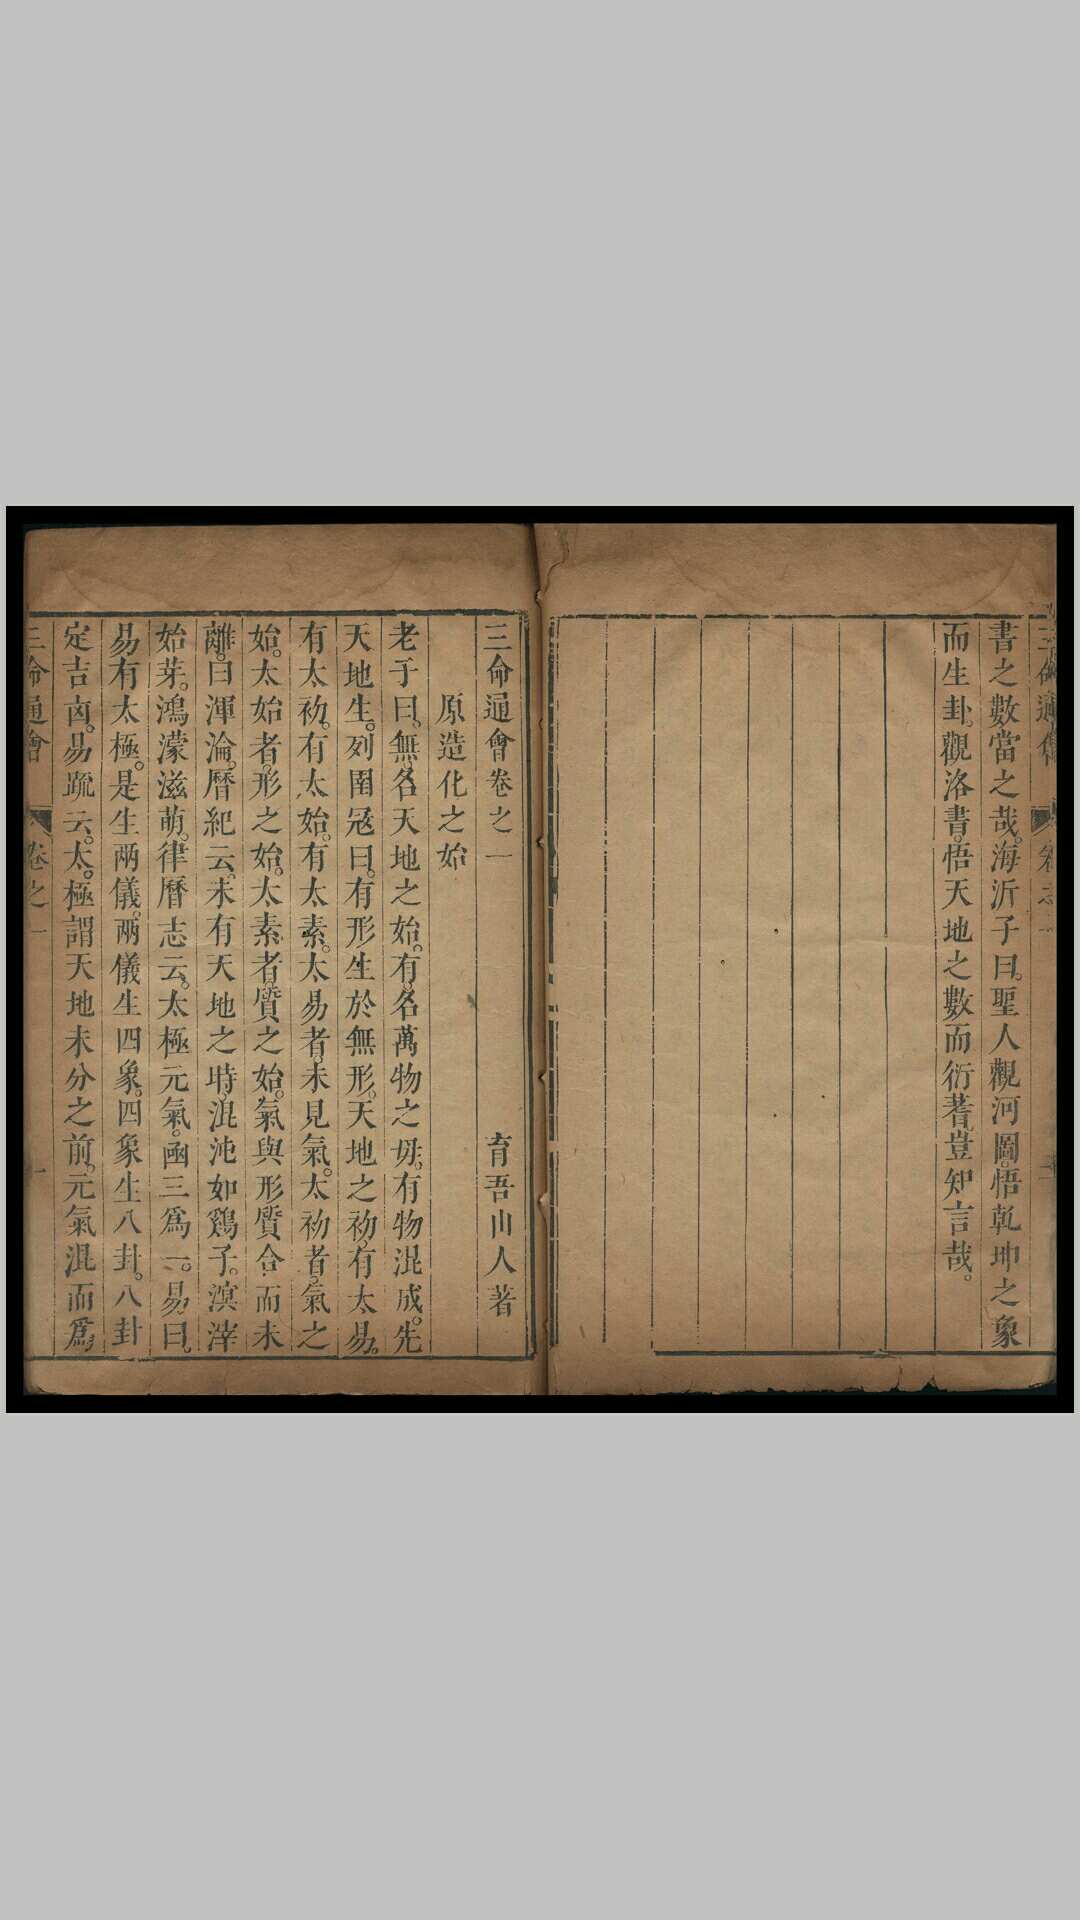 書之數當之哉。海沂子曰。聖人觀河圖。悟乾坤之象
而生卦。觀洛書。悟天地之數而衍蓍豈知言哉。
三命通會卷之一 育吾山人著
原造化之始
老子曰。無名天地之始。有名萬物之母。有物混成。先
天地生。列圄冦曰。有形生於無形。天地之初。有太易。
有太初。有太始。有太素。太易者。未見氣。太初者。氣之
始。太始者。形之始。太素者。質之始。氣與形質合而未
離。曰渾淪。曆紀云。未有天地之時。混沌如鷄子。溟涬
始芽。鴻濛滋萌。律曆志云。太極元氣。函三爲一。易曰。
易有太極。是生兩儀。兩儀生四象。四象生八卦。八卦
定吉凶。易疏云。太極謂天地未分之前。元氣混而爲
三命通會 卷之一 一